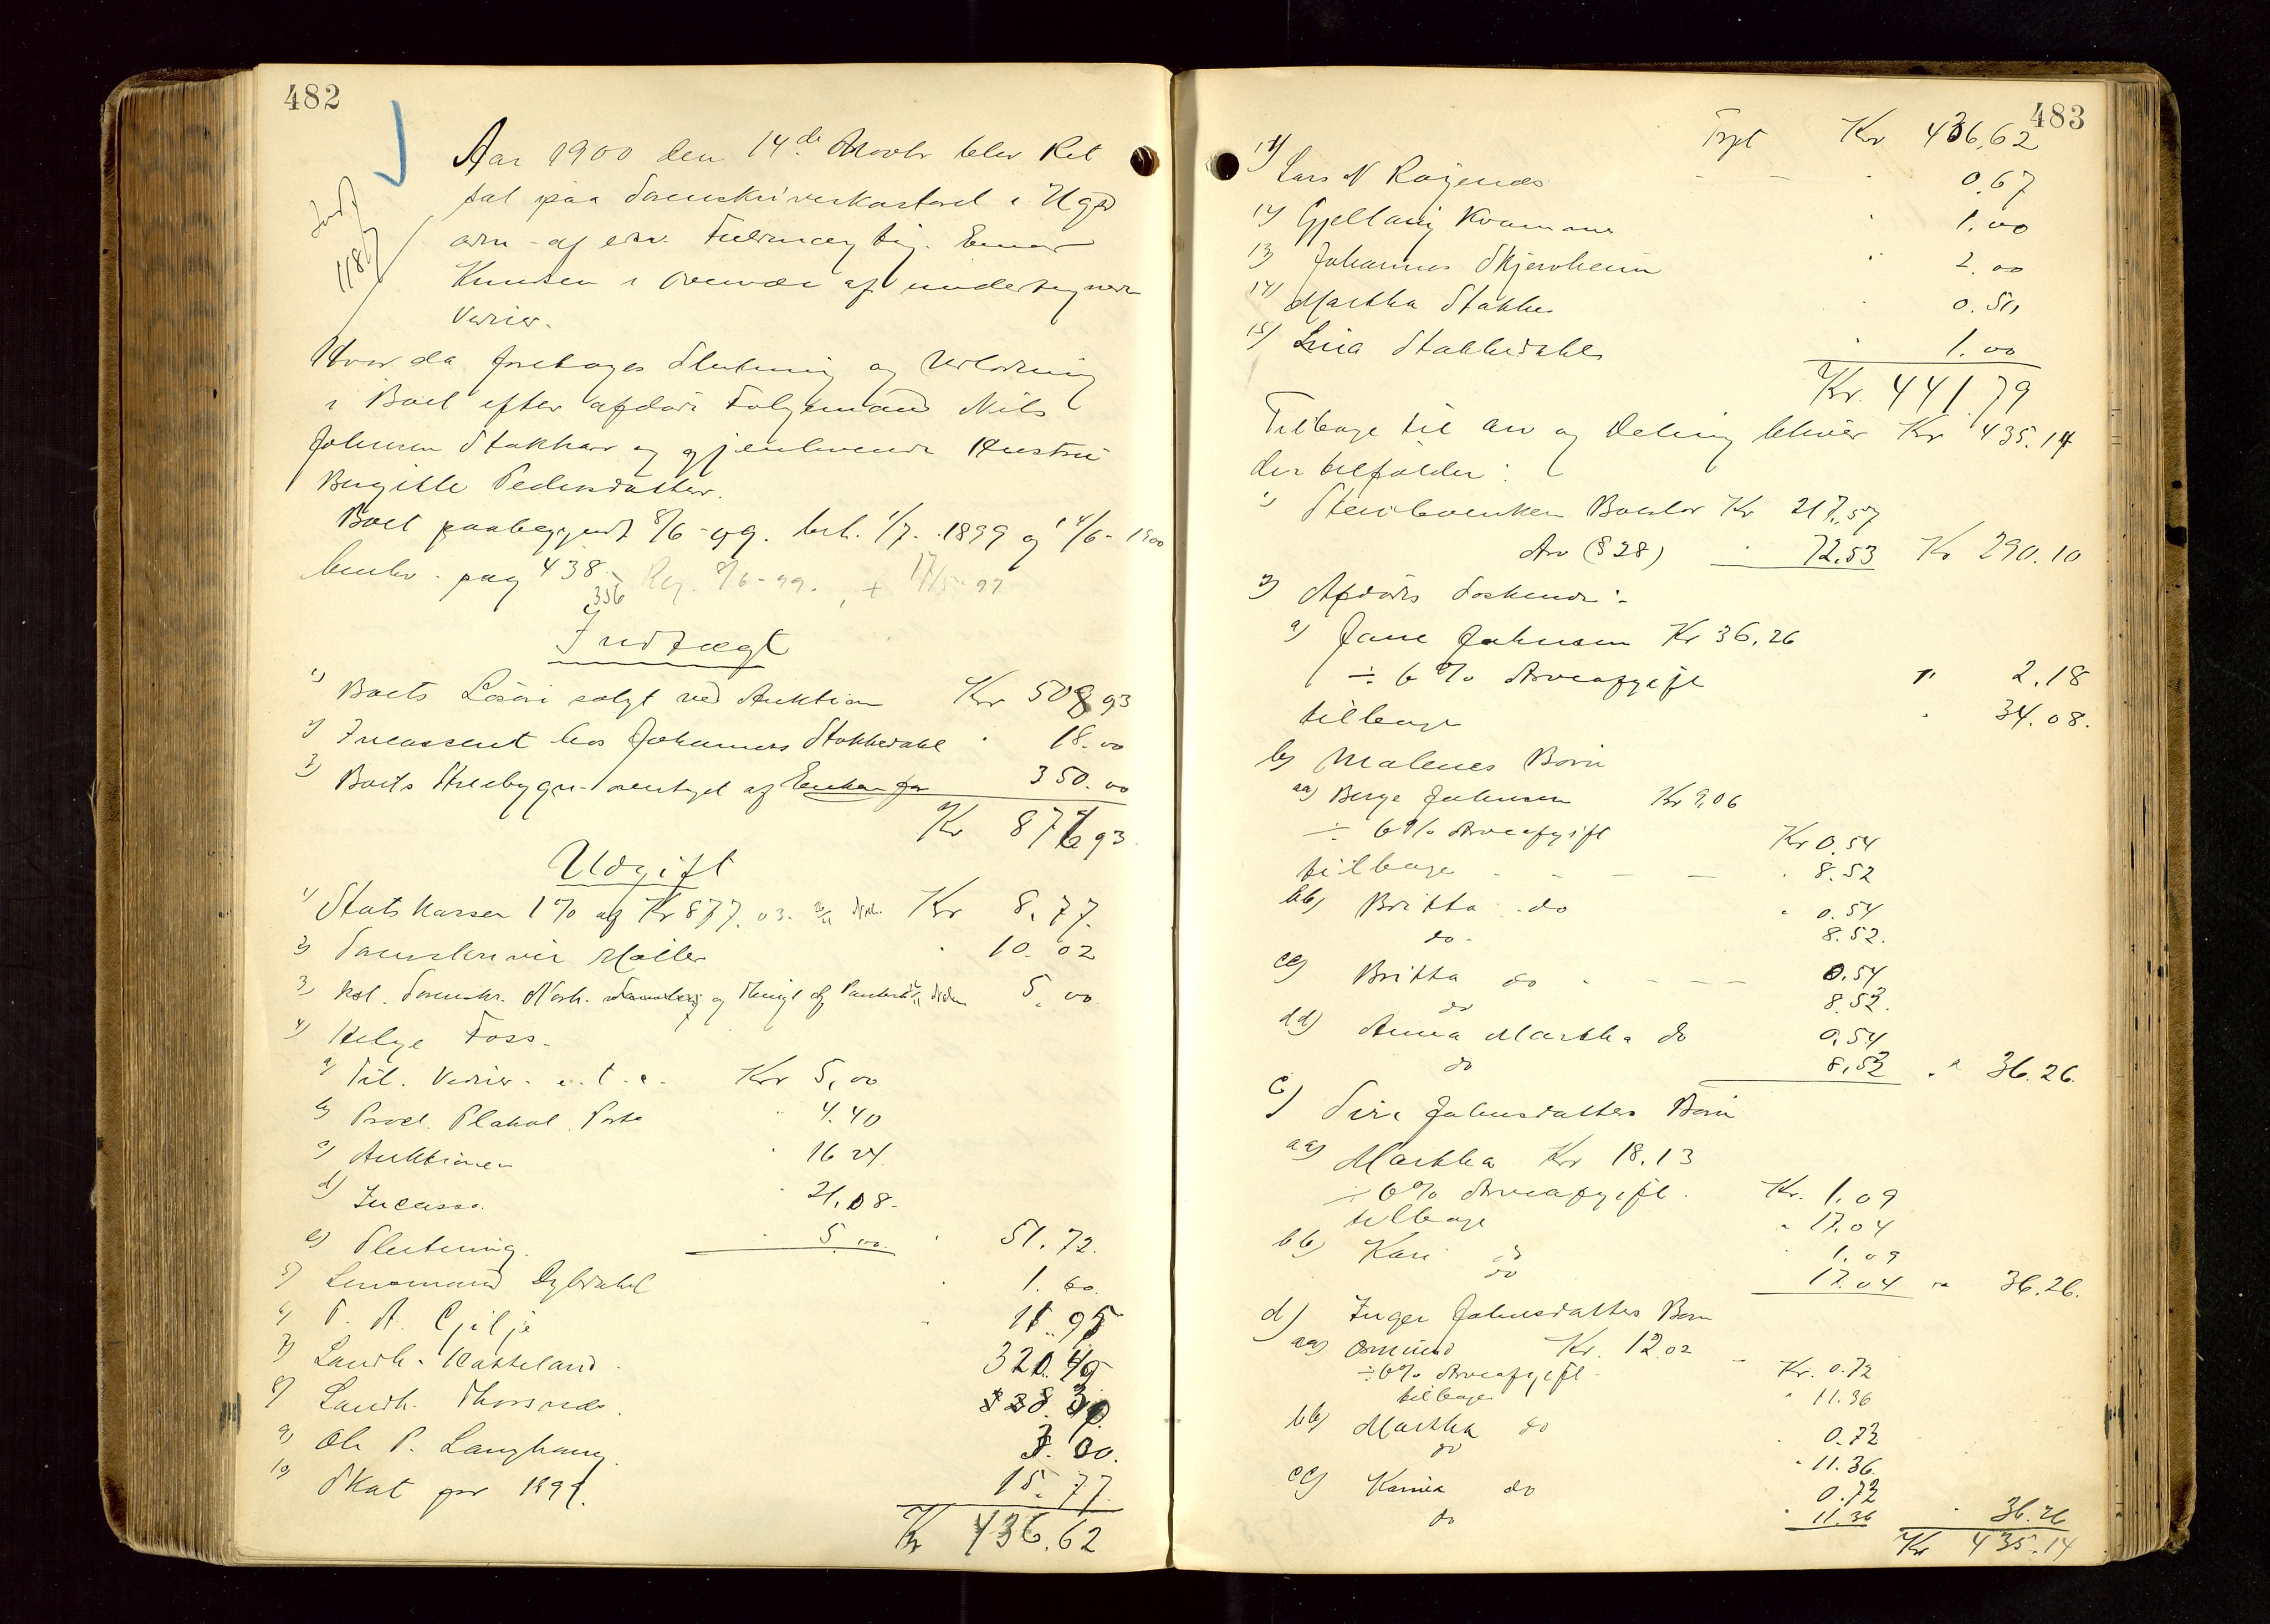 482
Aar 1900 den 14de Novbr blev Ret
sat paa Sorenskriverkontoret i Ugs
dern af edsv. Fuldmægtig Einar
Knudsen i Overvær af undertegnede
Vidner.
Hvor da foretoges Slutning og Udlodning
i Boet efter afdøde Folgemand Nils
Johnsen Stakkar og gjenlevende Hustru
Birgitte Pedersdatter.
Boet paabegyndt 8/6-99. beh. 1/7-1899 og 14/6-1900
pag 438. Reg. 8/6-99. + 17/5-99
356
Indtægt
1) Boets Løsøre solgt ved Auktion Kr 508 93
2) Incasseret hos Johannes Stakkedahl " 18.00
3) Boets Huusbygn. overtaget af Enken for 350.00
Kr 876 93.
Udgift
1) Statskassen 1% af Kr 877.03. Kr 8.77.
2) Sorenskriver Møller " 10.02
3) Kst. Sorenskr. og Thingl. af 5.00
4) Helge Foss.
a) Til. Vidner. e. t. c. Kr 5,00
b) Procl. Plakat. Porto " 4.40
c) Auktionen " 16 24.
d) Incasso. " 21.08.
e) Slutning. " 5.00. " 51.72.
5) Lensmand Dybdahl " 1.60.
6) T. A. Gilje 11.95
7) Landh. Hatteland. 320.45
8) Landh. Thorsnes. 8.30.
9) Ole P. Langhaug. 3.00.
10) Skat for 1899. 15.77.
Kr 436.62
483
Tspt Kr 436,62
11) Lars N Røgenes 0.67
12) Gjellaug Kvamme " 1.00
13) Johannes Skjerveheim " 2.00
14) Martha Stakke 0.50
15) Lina Stakkedahl " 1.00
Kr. 441.79
Tilbage til Arv og Deling bliver Kr 435.14
der tilfalder:
1) Stervboenken Boeslod Kr 217,57
Arv (§ 28) " 72.53 Kr 290.10
2) Afdødes Søskende:
a) Jane Johnsen Kr 36,26
÷ 6% Arveafgift " 2.18
tilbage " 34.08.
b) Malenes Børn
aa) Berge Johnsen Kr 9,06
÷ 6% Arveafgift Kr 0.54
tilbage " 8.52
bb) Britta do " 0.54
do. 8.52.
cc) Britta do 0.54
do 8.52.
dd) Anna Martha do 0.54
do 8,52 " 36.26.
c) Siri Johnsdatters Børn
aa) Martha Kr 18.13
÷ 6% Arveafgift. Kr. 1.09
tilbage " 17.04
bb) Kari do " 1.09
do 17.04 " 36,26.
d) Inger Johnsdatters Børn
aa) Osmund Kr. 12.02
÷ 6% Arveafgift Kr. 0.72
tilbage " 11.36
bb) Martha do 0.72
do " 11.36.
cc) Karina do 0.72
do " 11.36 " 36.26
Kr 435.14